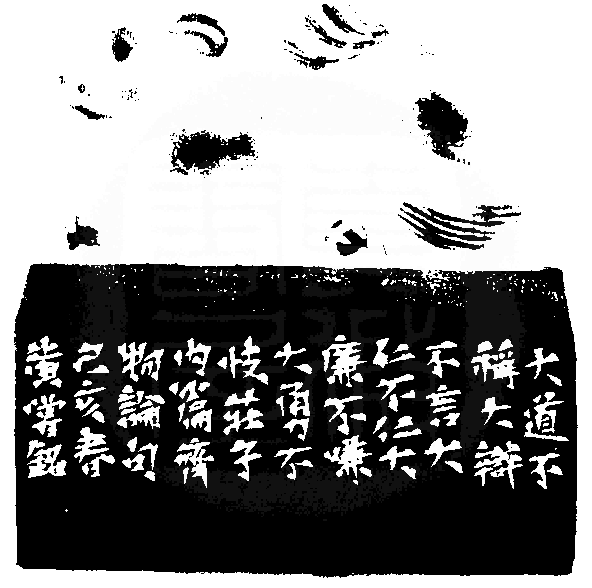 大道不
稱大辯
不言大
仁不仁大
廉不嗛
大勇不
忮莊子
内篇齊
物論句
己亥春
黄嘗銘